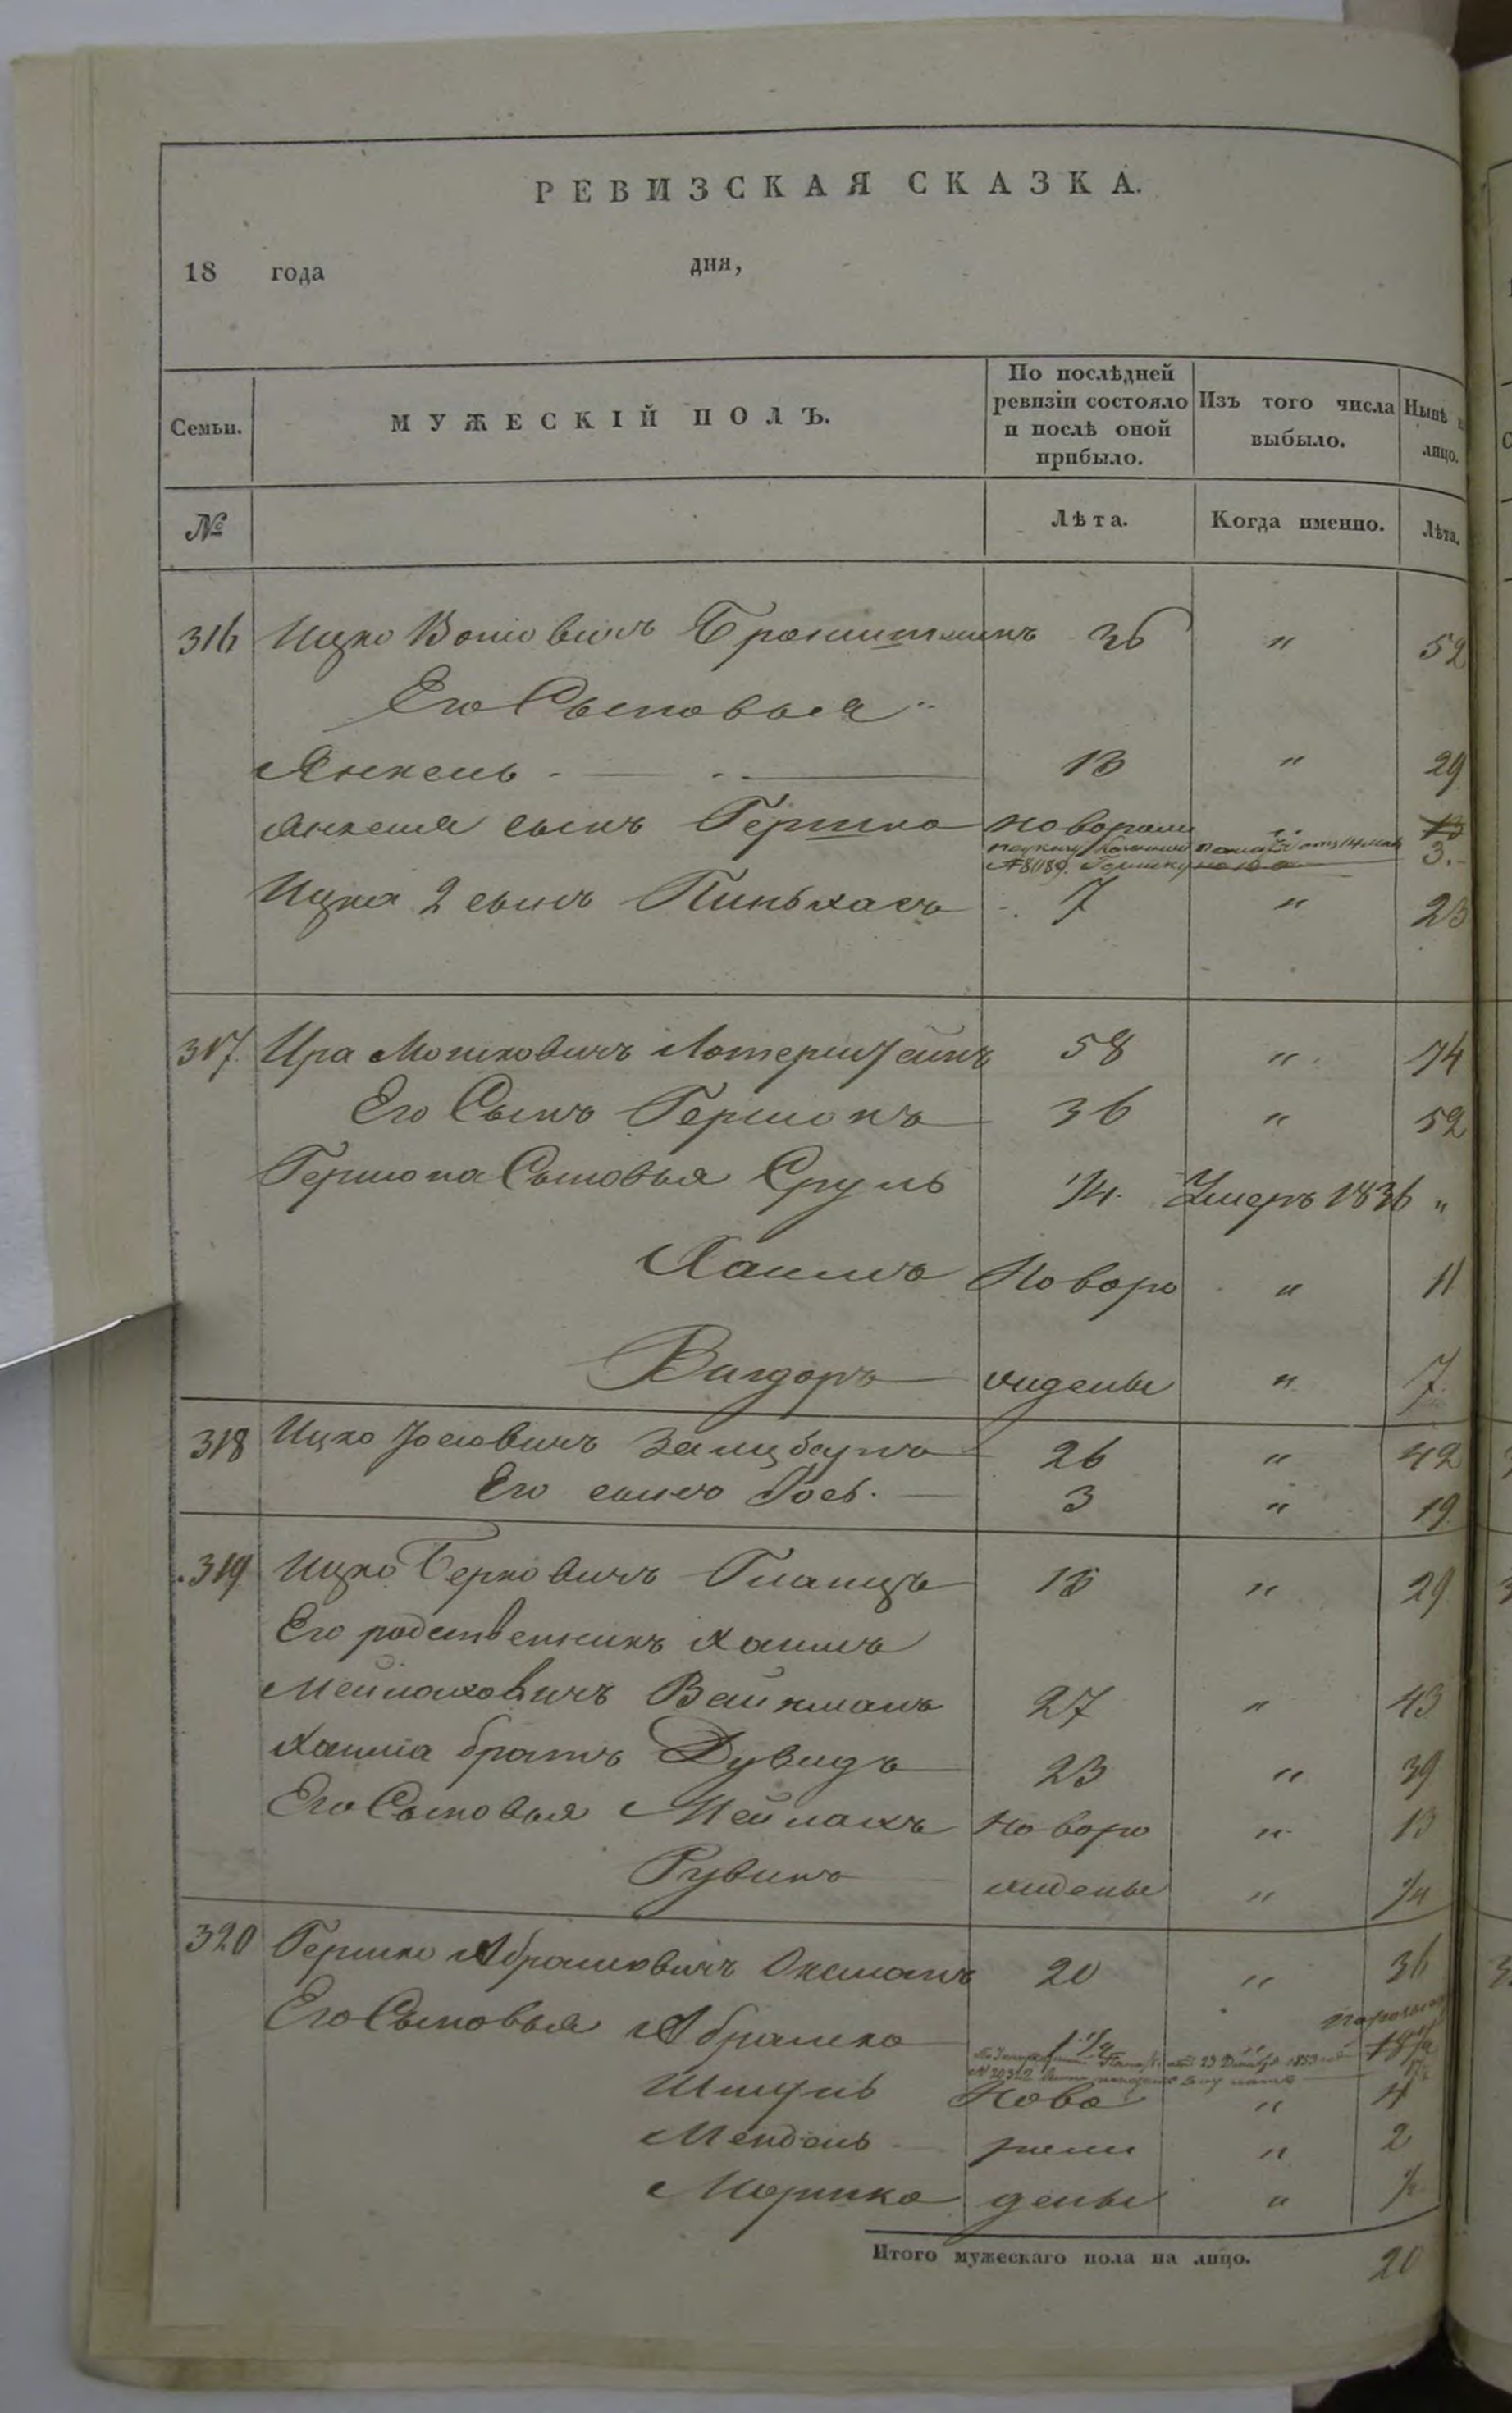 РЕВИЗСКАЯ СКАЗКА.
18 года дня,
Семьи. МУЖЕСКІЙ ПОЛЪ. По послѣдней ревизіи состояло и послѣ оной прибыло. Изъ того числа выбыло. Нынѣ на лицо.
№ Лѣта. Когда именно. Лѣта.
316 Ицко 36 " 52
Его Сыновья
Янкель 13 " 29
Янкеля сынъ Гершко новорожд 3
Ицка 2 сынъ Пиньхасъ 7 " 23
317 Ира Мошковичъ 58 " 74
Его Сынъ Гершонъ 36 " 52
Гершона Сыновья Сруль 14 Умеръ 1836 "
Хаимъ Новоро " 11
Вигдоръ жденые " 7
318 Ицко Іосіовичъ Залцбергъ 26 " 42
Его сынъ Іось 3 " 19
319 Ицко Берковичъ Гланцъ 13 " 29
Его родственникъ Хаимъ
Мейлаховичъ Вайнманъ 27 " 43
Хаима братъ Дувидъ 23 " 39
Его Сыновья Мейлахъ Новоро " 13
Рувинъ жденые " 1/4
320 Гершко Абрамовичъ Оксманъ 20 " 36
Его Сыновья Абрамко 1 1/2
№ 20312
Шмуль Ново " 4
Мендель рож " 2
Мошко деные " 1/2
Итого мужескаго пола на лицо. 20